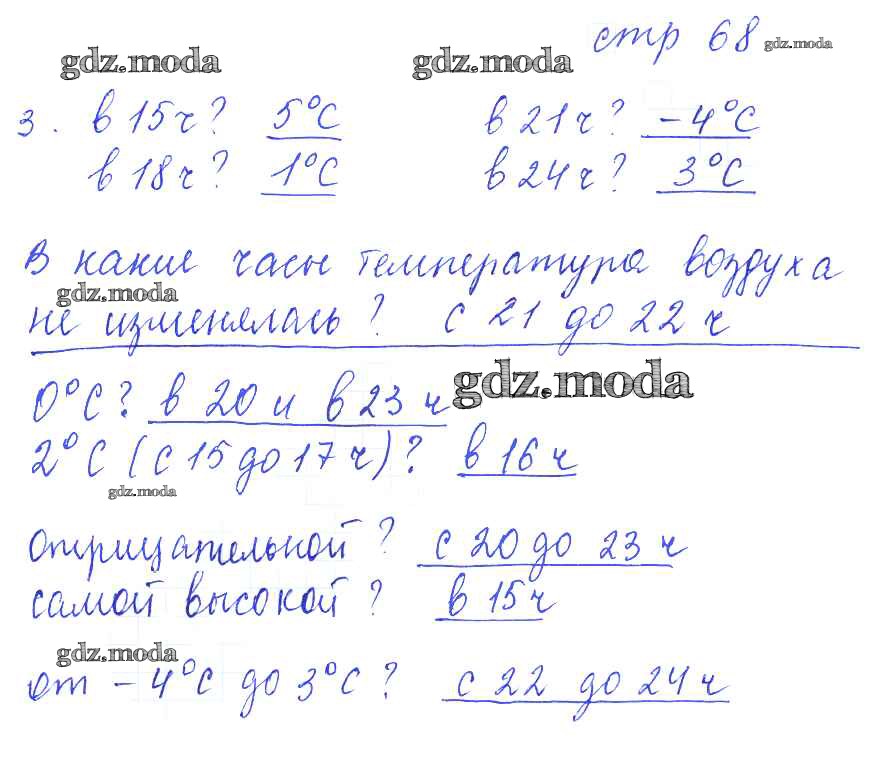 стр 68 gdz.moda
gdz.moda gdz.moda
3. в 15 ч? 5°С в 21 ч? -4°С
в 18 ч? 1°С в 24 ч? 3°С
В какие часы температура воздуха
gdz.moda
не изменялась? с 21 до 22 ч
gdz.moda
0°С? в 20 и в 23 ч
2°С (с 15 до 17 ч)? в 16 ч
gdz.moda
отрицательной? с 20 до 23 ч
самой высокой? в 15 ч
gdz.moda
от -4°С до 3°С? с 22 до 24 ч